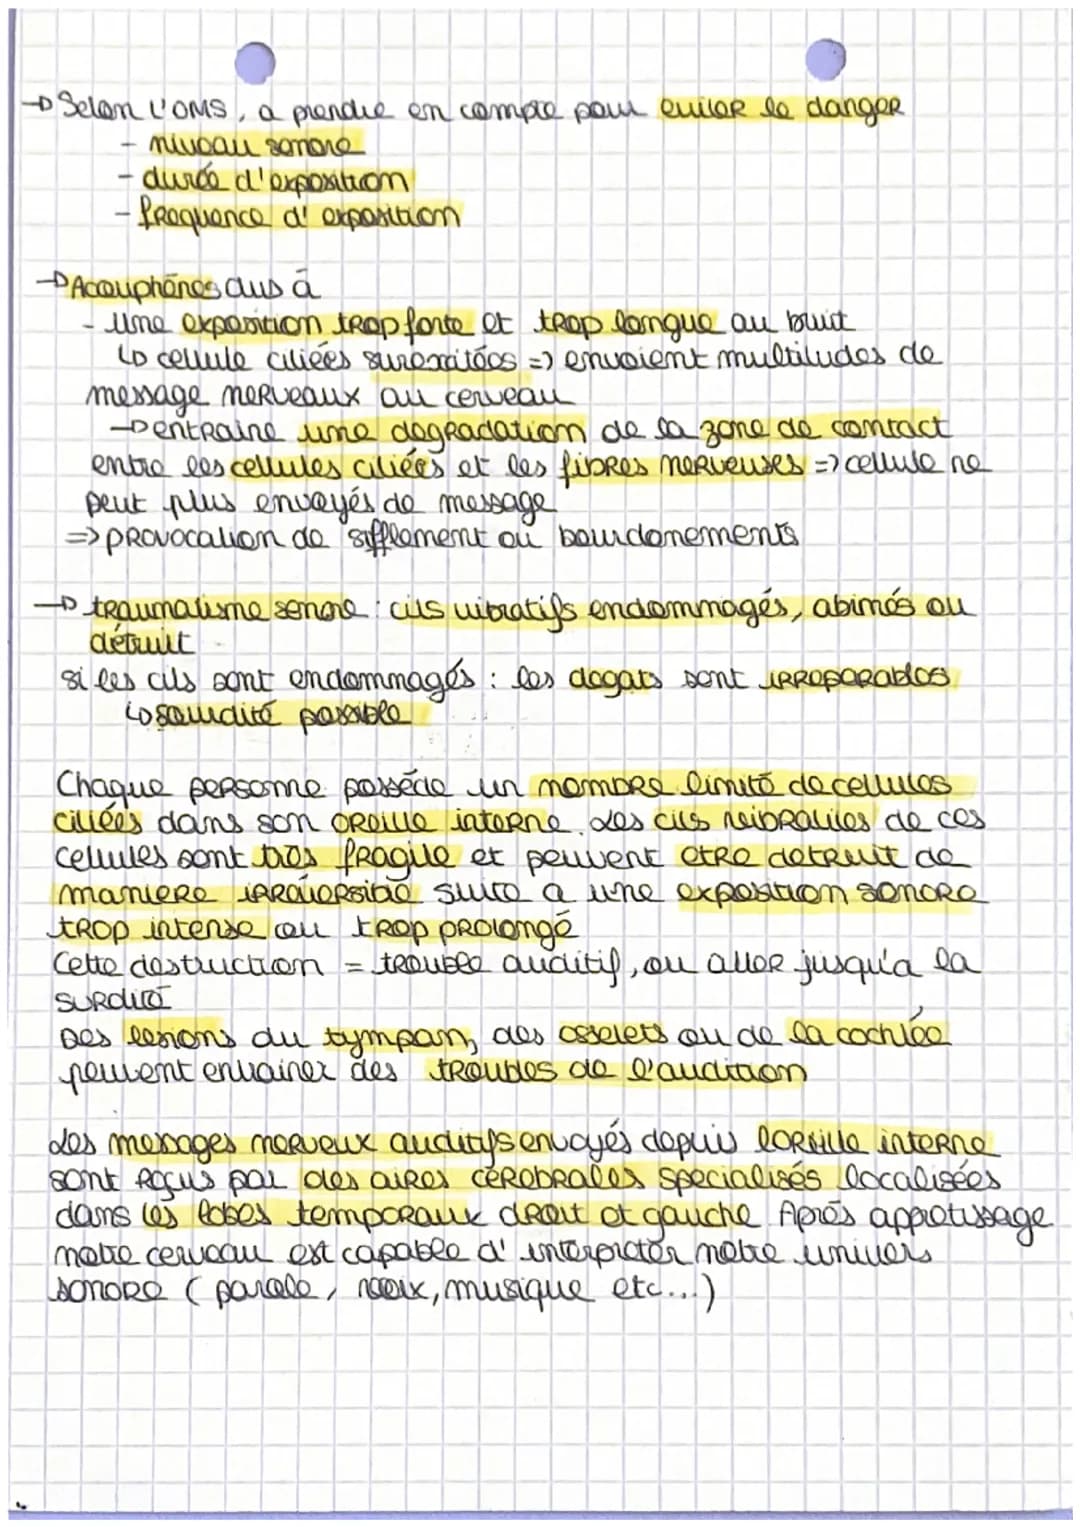 → Selon l'OMS, a prendre en compte pour eviter le danger
- niveau sonore
- durée d'exposition
- frequence d'exposition
→ Acouphènes dus à
- une exposition trop forte et trop longue au bruit
↳ cellule ciliées surexcitées => envoient multitudes de
message nerveaux au cerveau
→ entraine une degradation de la zone de contact
entre les cellules ciliées et les fibres nerveuses => cellule ne
peut plus envoyés de message
=> provocation de sifflement ou bourdonements
→ traumatisme sonore : cils vibratifs endommagés, abimés ou
détruit
si les cils sont endommagés : les degats sont irreparables
↳ sourdité possible
Chaque personne possède un nombre limité de cellules
ciliées dans son oreille interne. Les cils vibratiles de ces
cellules sont très fragile et peuvent etre detruit de
maniere irréversible suite a une exposition sonore
trop intense ou trop prolongé
Cette destruction = trouble auditif, ou aller jusqu'a la
surdité
Des lesions du tympan, des osselets ou de la cochlée
peuvent entrainer des troubles de l'audition
Les messages nerveux auditifs envoyés depuis l'oreille interne
sont reçus par des aires cérébrales specialisés localisées
dans les lobes temporaux droit et gauche Après apprentissage
notre cerveau est capable d'interpreter notre univers
sonore ( parole, voix, musique etc...)